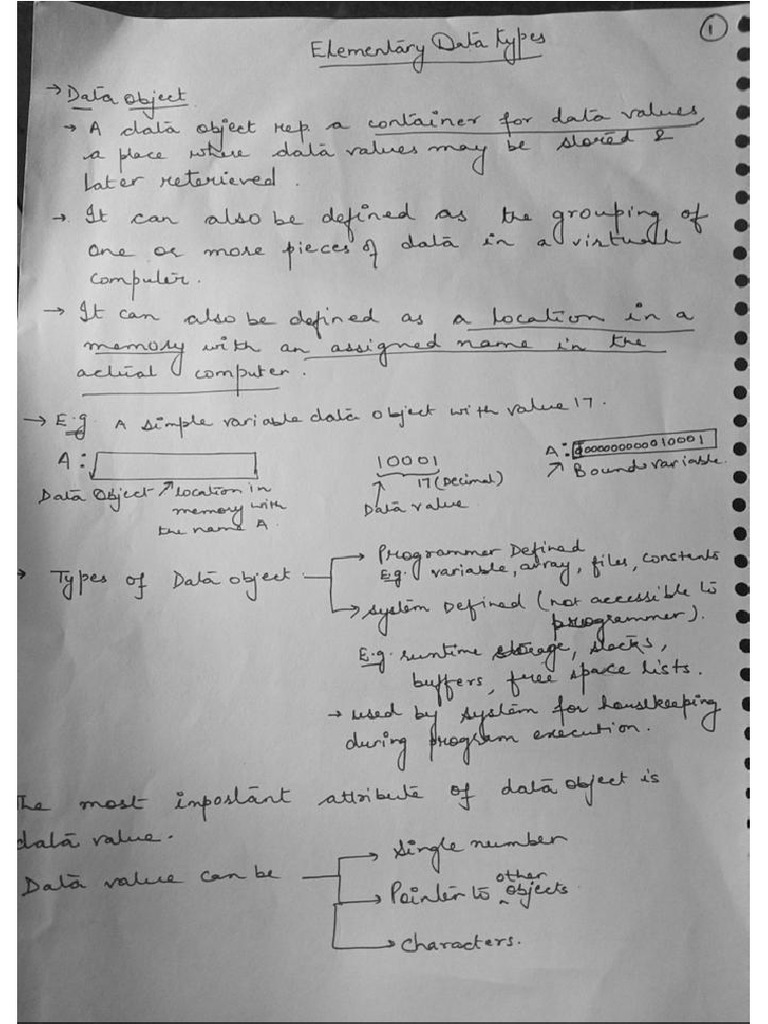 1
Elementary Data Types
→ Data object
→ A data object rep. a container for data values,
a place where data values may be stored &
later reterieved.
→ It can also be defined as the grouping of
one or more pieces of data in a virtual
computer.
→ It can also be defined as a location in a
memory with an assigned name in the
actual computer.
→ E.g. A simple variable data object with value 17.
A:
Data Object ↗ location in
memory with
the name A.
10001
17 (Decimal)
Data value
A: 0000000000010001
↗ Bound variable.
→ Types of Data object
→ Programmer Defined
E.g. variable, array, files, constants
→ System Defined (not accessible to
programmer).
E.g. runtime storage, stacks,
buffers, free space lists.
→ used by system for housekeeping
during program execution.
The most inpostant attribute of data object is
data value.
Data value can be
→ Single number
→ Pointer to other objects
→ characters.